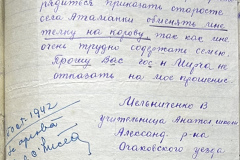 рядиться приказать старосте
села Атаманки обменять мне
телку на корову, так как мне
очень трудно содержать семью.
Прошу Вас не
отказать на мое прошение
Мельниченко В
учительница школы
р-на
Очаковского уезда
1942